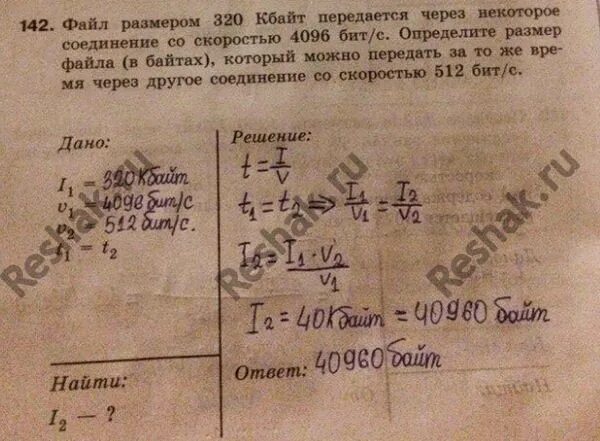 142. Файл размером 320 Кбайт передается через некоторое
соединение со скоростью 4096 бит/с. Определите размер
файла (в байтах), который можно передать за то же вре-
мя через другое соединение со скоростью 512 бит/с.
Дано:
I₁ = 320 Кбайт
v₁ = 4096 бит/с
v₂ = 512 бит/с.
t₁ = t₂
Найти:
I₂ — ?
Решение:
t = I/V
t₁ = t₂ ⇒ I₁/V₁ = I₂/V₂
I₂ = I₁ · V₂/V₁
I₂ = 40 Кбайт = 40960 байт
Ответ: 40960 байт
Reshak.ru
Reshak.ru
Reshak.ru